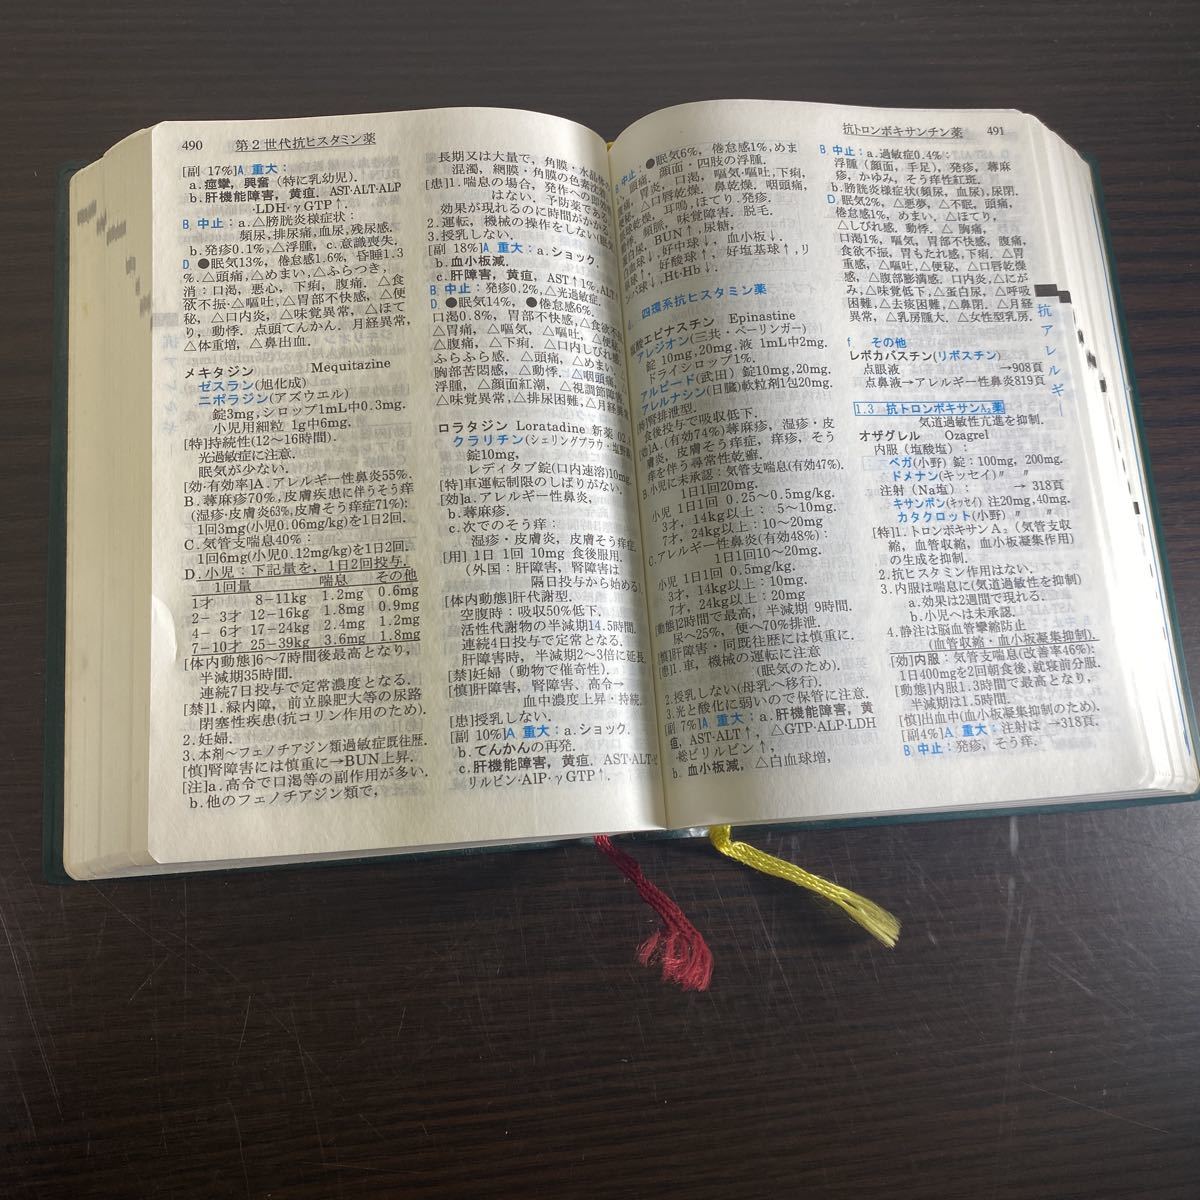 490 第2世代抗ヒスタミン薬
[副 17%]A 重大:
a.痙攣, 興奮 (特に乳幼児).
b.肝機能障害, 黄疸, AST·ALT·ALP
·LDH·γGTP↑.
B 中止: a.△膀胱炎様症状:
頻尿,排尿痛,血尿,残尿感.
b.発疹0.1%,△浮腫, c.意識喪失.
D ●眠気13%, 倦怠感1.6%, 昏睡1.3
%.△頭痛, △めまい,△ふらつき,
消: 口渇, 悪心, 下痢, 腹痛. △食
欲不振·△嘔吐, △胃部不快感, △便
秘, △口内炎, △味覚異常, △ほて
り, 動悸. 点頭てんかん. 月経異常,
△体重増, △鼻出血.
メキタジン Mequitazine
ゼスラン(旭化成)
ニポラジン(アズウエル)
錠3mg, シロップ1mL中0.3mg.
小児用細粒 1g中6mg.
[特]持続性(12〜16時間).
光過敏症に注意.
眠気が少ない.
[効·有効率]A.アレルギー性鼻炎55%.
B.蕁麻疹70%,皮膚疾患に伴うそう痒
(湿疹·皮膚炎63%,皮膚そう痒症71%):
1回3mg(小児0.06mg/kg)を1日2回.
C.気管支喘息40%:
1回6mg(小児0.12mg/kg)を1日2回.
D.小児: 下記量を, 1日2回投与.
1回量 喘息 その他
1才 8-11kg 1.2mg 0.6mg
2- 3才 12-16kg 1.8mg 0.9mg
4- 6才 17-24kg 2.4mg 1.2mg
7-10才 25-39kg 3.6mg 1.8mg
[体内動態]6〜7時間後最高となり,
半減期35時間.
連続7日投与で定常濃度となる.
[禁]1.緑内障, 前立腺肥大等の尿路
閉塞性疾患(抗コリン作用のため).
2.妊婦.
3.本剤〜フェノチアジン類過敏症既往歴.
[慎]腎障害には慎重に→BUN上昇.
[注]a.高令で口渇等の副作用が多い.
b.他のフェノチアジン類で,
長期又は大量で, 角膜·水晶体の
混濁, 網膜·角膜の色素沈着
[患]1.喘息の場合, 発作への即効
はない. 予防薬である.
効果が現れるのに時間がかかる.
2.運転, 機械の操作をしない(眠気
3.授乳しない.
[副 18%]A 重大: a.ショック,
b.血小板減.
c.肝障害, 黄疸, AST↑1%,ALT↑
B 中止: 発疹0.2%,△光過敏症.
D ●眠気14%, ●倦怠感6%.
口渇0.8%, 胃部不快感,△食欲不振
△胃痛, △嘔気, △嘔吐, △便秘,
△腹痛, △下痢. △口内しびれ感.
ふらふら感. △頭痛, △めまい.
胸部苦悶感, △動悸, △咽頭痛,
浮腫, △顔面紅潮, △視調節障害,
△味覚異常, △排尿困難, △月経異常
ロラタジン Loratadine 新薬 (02
クラリチン(シェリングプラウ·塩野義
錠10mg,
レディタブ錠(口内速溶)10mg.
[特]車運転制限のしばりがない.
[効]a.アレルギー性鼻炎,
b.蕁麻疹.
c.次でのそう痒:
湿疹·皮膚炎, 皮膚そう痒症.
[用] 1日 1回 10mg 食後服用.
(外国: 肝障害, 腎障害は
隔日投与から始める).
[体内動態]肝代謝型.
空腹時: 吸収50%低下.
活性代謝物の半減期14.5時間.
連続4日投与で定常となる.
肝障害時, 半減期2〜3倍に延長.
[禁]妊婦(動物で催奇性).
[慎]肝障害, 腎障害, 高令→
血中濃度上昇·持続.
[患]授乳しない.
[副 10%]A 重大: a.ショック.
b.てんかんの再発.
c.肝機能障害, 黄疸, AST·ALT·ビ
リルビン·AlP·γGTP↑.
抗トロンボキサンチン薬 491
中止: ●眠気6%, 倦怠感1%,めま
頭痛, 顔面·四肢の浮腫.
胃炎, 口渇, 嘔気·嘔吐,下痢,
口唇乾燥, 鼻乾燥, 咽頭痛,
耳鳴, ほてり. 発疹.
頻脈, 味覚障害, 脱毛.
BUN↑,尿糖,
球↓,好中球↓, 血小板↓.
好酸球↑, 好塩基球↑, リ
ンパ球↓, Ht·Hb↓.
四環系抗ヒスタミン薬
塩酸エピナスチン Epinastine
アレジオン(三共·ベーリンガー)
錠 10mg,20mg.液 1mL中2mg.
ドライシロップ1%.
アルピード(武田) 錠10mg,20mg.
アレルナシン(日醫)軟粒剤1包20mg.
[特]腎排泄型.
食後投与で吸収低下.
[効]A.(有効74%)蕁麻疹, 湿疹·皮
膚炎, 皮膚そう痒症, 痒疹, そう
痒を伴う尋常性乾癬.
B.小児に未承認: 気管支喘息(有効47%).
1日1回20mg.
小児 1日1回 0.25〜0.5mg/kg.
3才, 14kg以上: 5〜10mg.
7才, 24kg以上: 10〜20mg
C.アレルギー性鼻炎(有効48%):
1日1回10〜20mg.
小児 1日1回 0.5mg/kg.
3才, 14kg以上: 10mg.
7才, 24kg以上: 20mg
[動態]2時間で最高, 半減期 9時間.
尿〜25%, 便〜70%排泄.
[慎]肝障害·同既往歴には慎重に.
[患]1.車, 機械の運転に注意
(眠気のため).
2.授乳しない(母乳へ移行).
3.光と酸化に弱いので保管に注意.
[副 7%]A 重大: a.肝機能障害, 黄
疸, AST·ALT↑, △GTP·ALP·LDH
·総ビリルビン↑,
b.血小板減, △白血球増,
B 中止: a.過敏症0.4%:
浮腫(顔面, 手足), 発疹, 蕁麻
疹, かゆみ, そう痒性紅斑.
b.膀胱炎様症状(頻尿, 血尿),尿閉.
D 眠気2%, △悪夢, △不眠, 頭痛,
倦怠感1%, めまい. △ほてり,
△しびれ感, 動悸. △ 胸痛,
口渇1%, 嘔気, 胃部不快感, 腹痛,
食欲不振, 胃もたれ感,下痢, △胃
重感, △嘔吐,△便秘, △口唇乾燥
感, △腹部膨満感. 口内炎, △にが
み,△味覚低下,△蛋白尿, △呼吸
困難,△去痰困難, △鼻閉. △月経
異常, △乳房腫大. △女性型乳房.
f その他
レボカバスチン(リボスチン)
点眼液 →908頁
点鼻液→アレルギー性鼻炎819頁
1.3 抗トロンボキサンA₂薬
気道過敏性亢進を抑制.
オザグレル Ozagrel
内服 (塩酸塩):
ベガ(小野) 錠: 100mg, 200mg.
ドメナン(キッセイ)〃
注射 (Na塩): → 318頁
キサンボン(キッセイ) 注20mg,40mg.
カタクロット(小野) 〃 〃
[特]1.トロンボキサンA₂ (気管支収
縮, 血管収縮, 血小板凝集作用)
の生成を抑制.
2.抗ヒスタミン作用はない.
3.内服は喘息に(気道過敏性を抑制)
a.効果は2週間で現れる.
b.小児へは未承認.
4.静注は脳血管攣縮防止
(血管収縮·血小板凝集抑制).
[効]内服: 気管支喘息(改善率46%):
1日400mgを2回朝食後,就寝前分服.
[動態]内服1.3時間で最高となり,
半減期は1.5時間.
[慎]出血中(血小板凝集抑制のため).
[副4%]A 重大: 注射は →318頁.
B 中止: 発疹, そう痒.
抗アレルギー